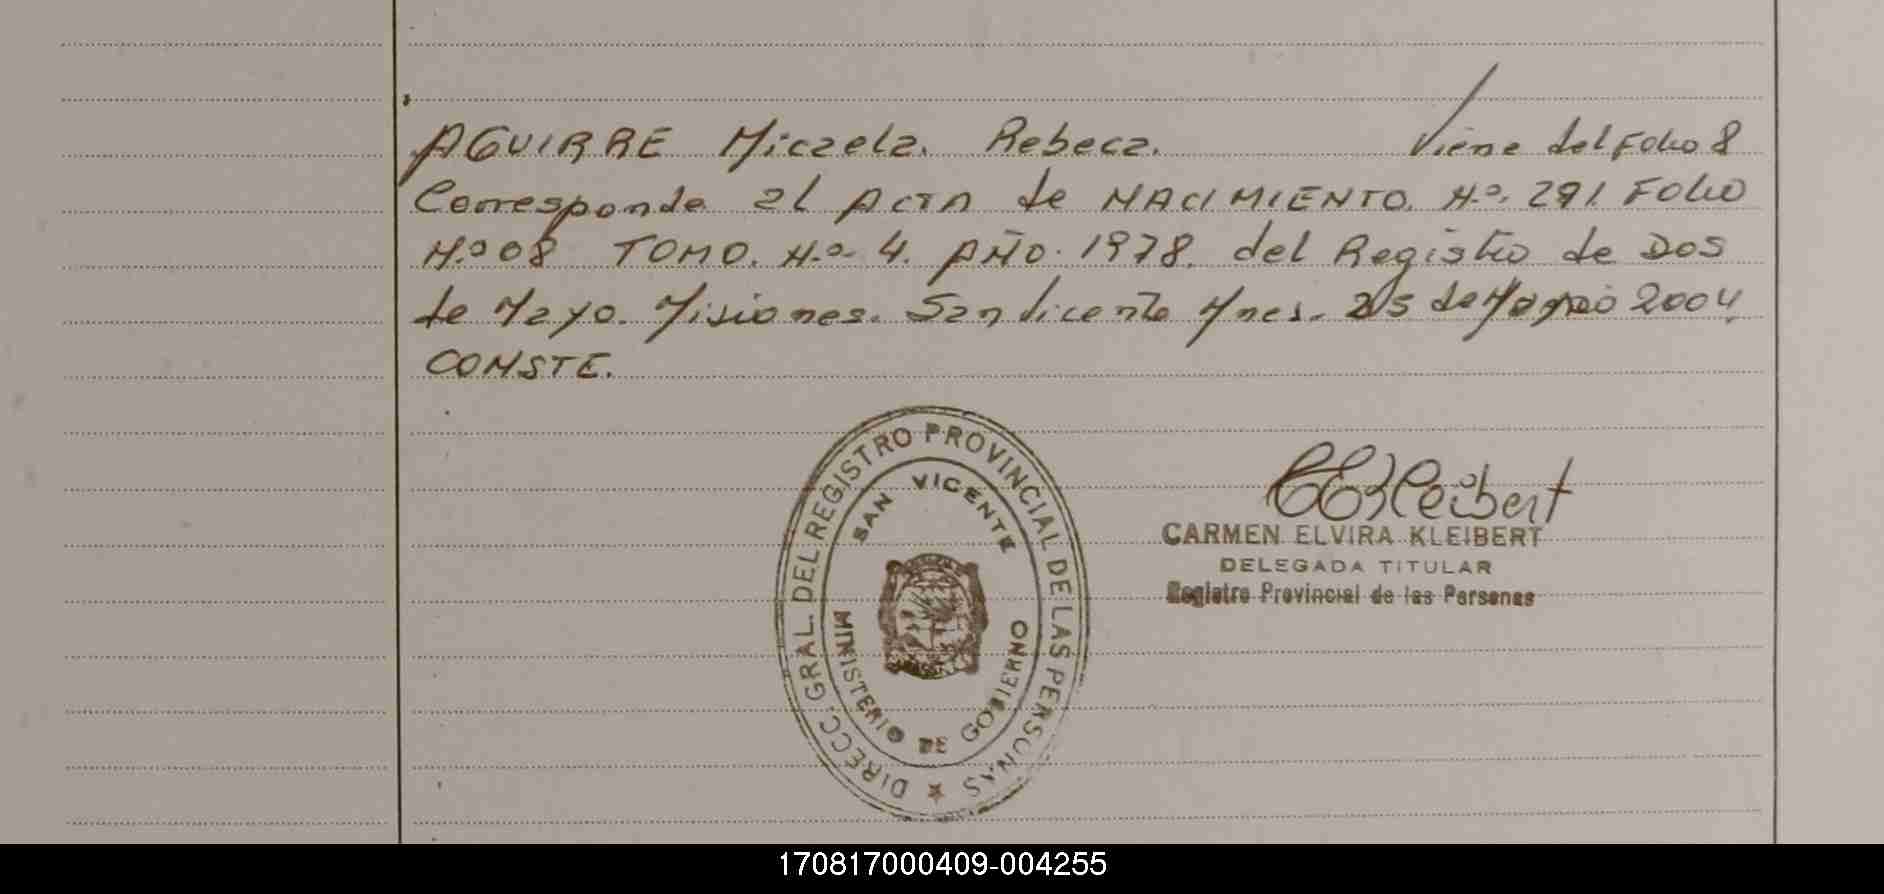 AGUIRRE Micaela. Rebeca. Viene del Folio 8
Corresponde al ACTA de NACIMIENTO. N.º 291 FOLIO
N.º 08 TOMO. N.º 4. AÑO. 1978. del Registro de DOS
de Mayo. Misiones. San Vicente Mnes. 25 de 2004.
CONSTE.
DIRECC. GRAL. DEL REGISTRO PROVINCIAL DE LAS PERSONAS
SAN VICENTE
MINISTERIO DE GOBIERNO
CEKleibert
CARMEN ELVIRA KLEIBERT
DELEGADA TITULAR
Registro Provincial de las Personas
170817000409-004255